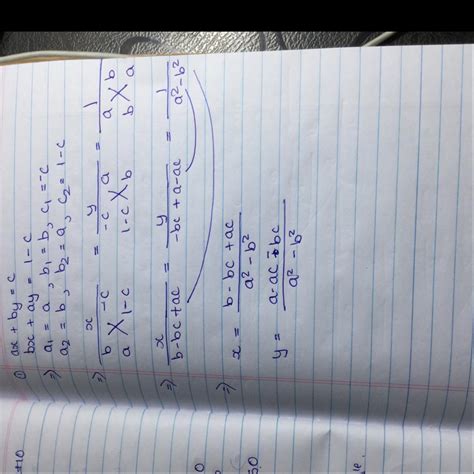 ① ax + by = c
bx + ay = 1-c
⇒ a₁ = a, b₁ = b, c₁ = -c
a₂ = b, b₂ = a, c₂ = 1-c
⇒ x = y = 1
b -c -c a a b
a 1-c 1-c b b a
⇒ x = y = 1
b-bc+ac -bc+a-ac a²-b²
⇒ x = b-bc+ac
a²-b²
y = a-ac-bc
a²-b²
+10